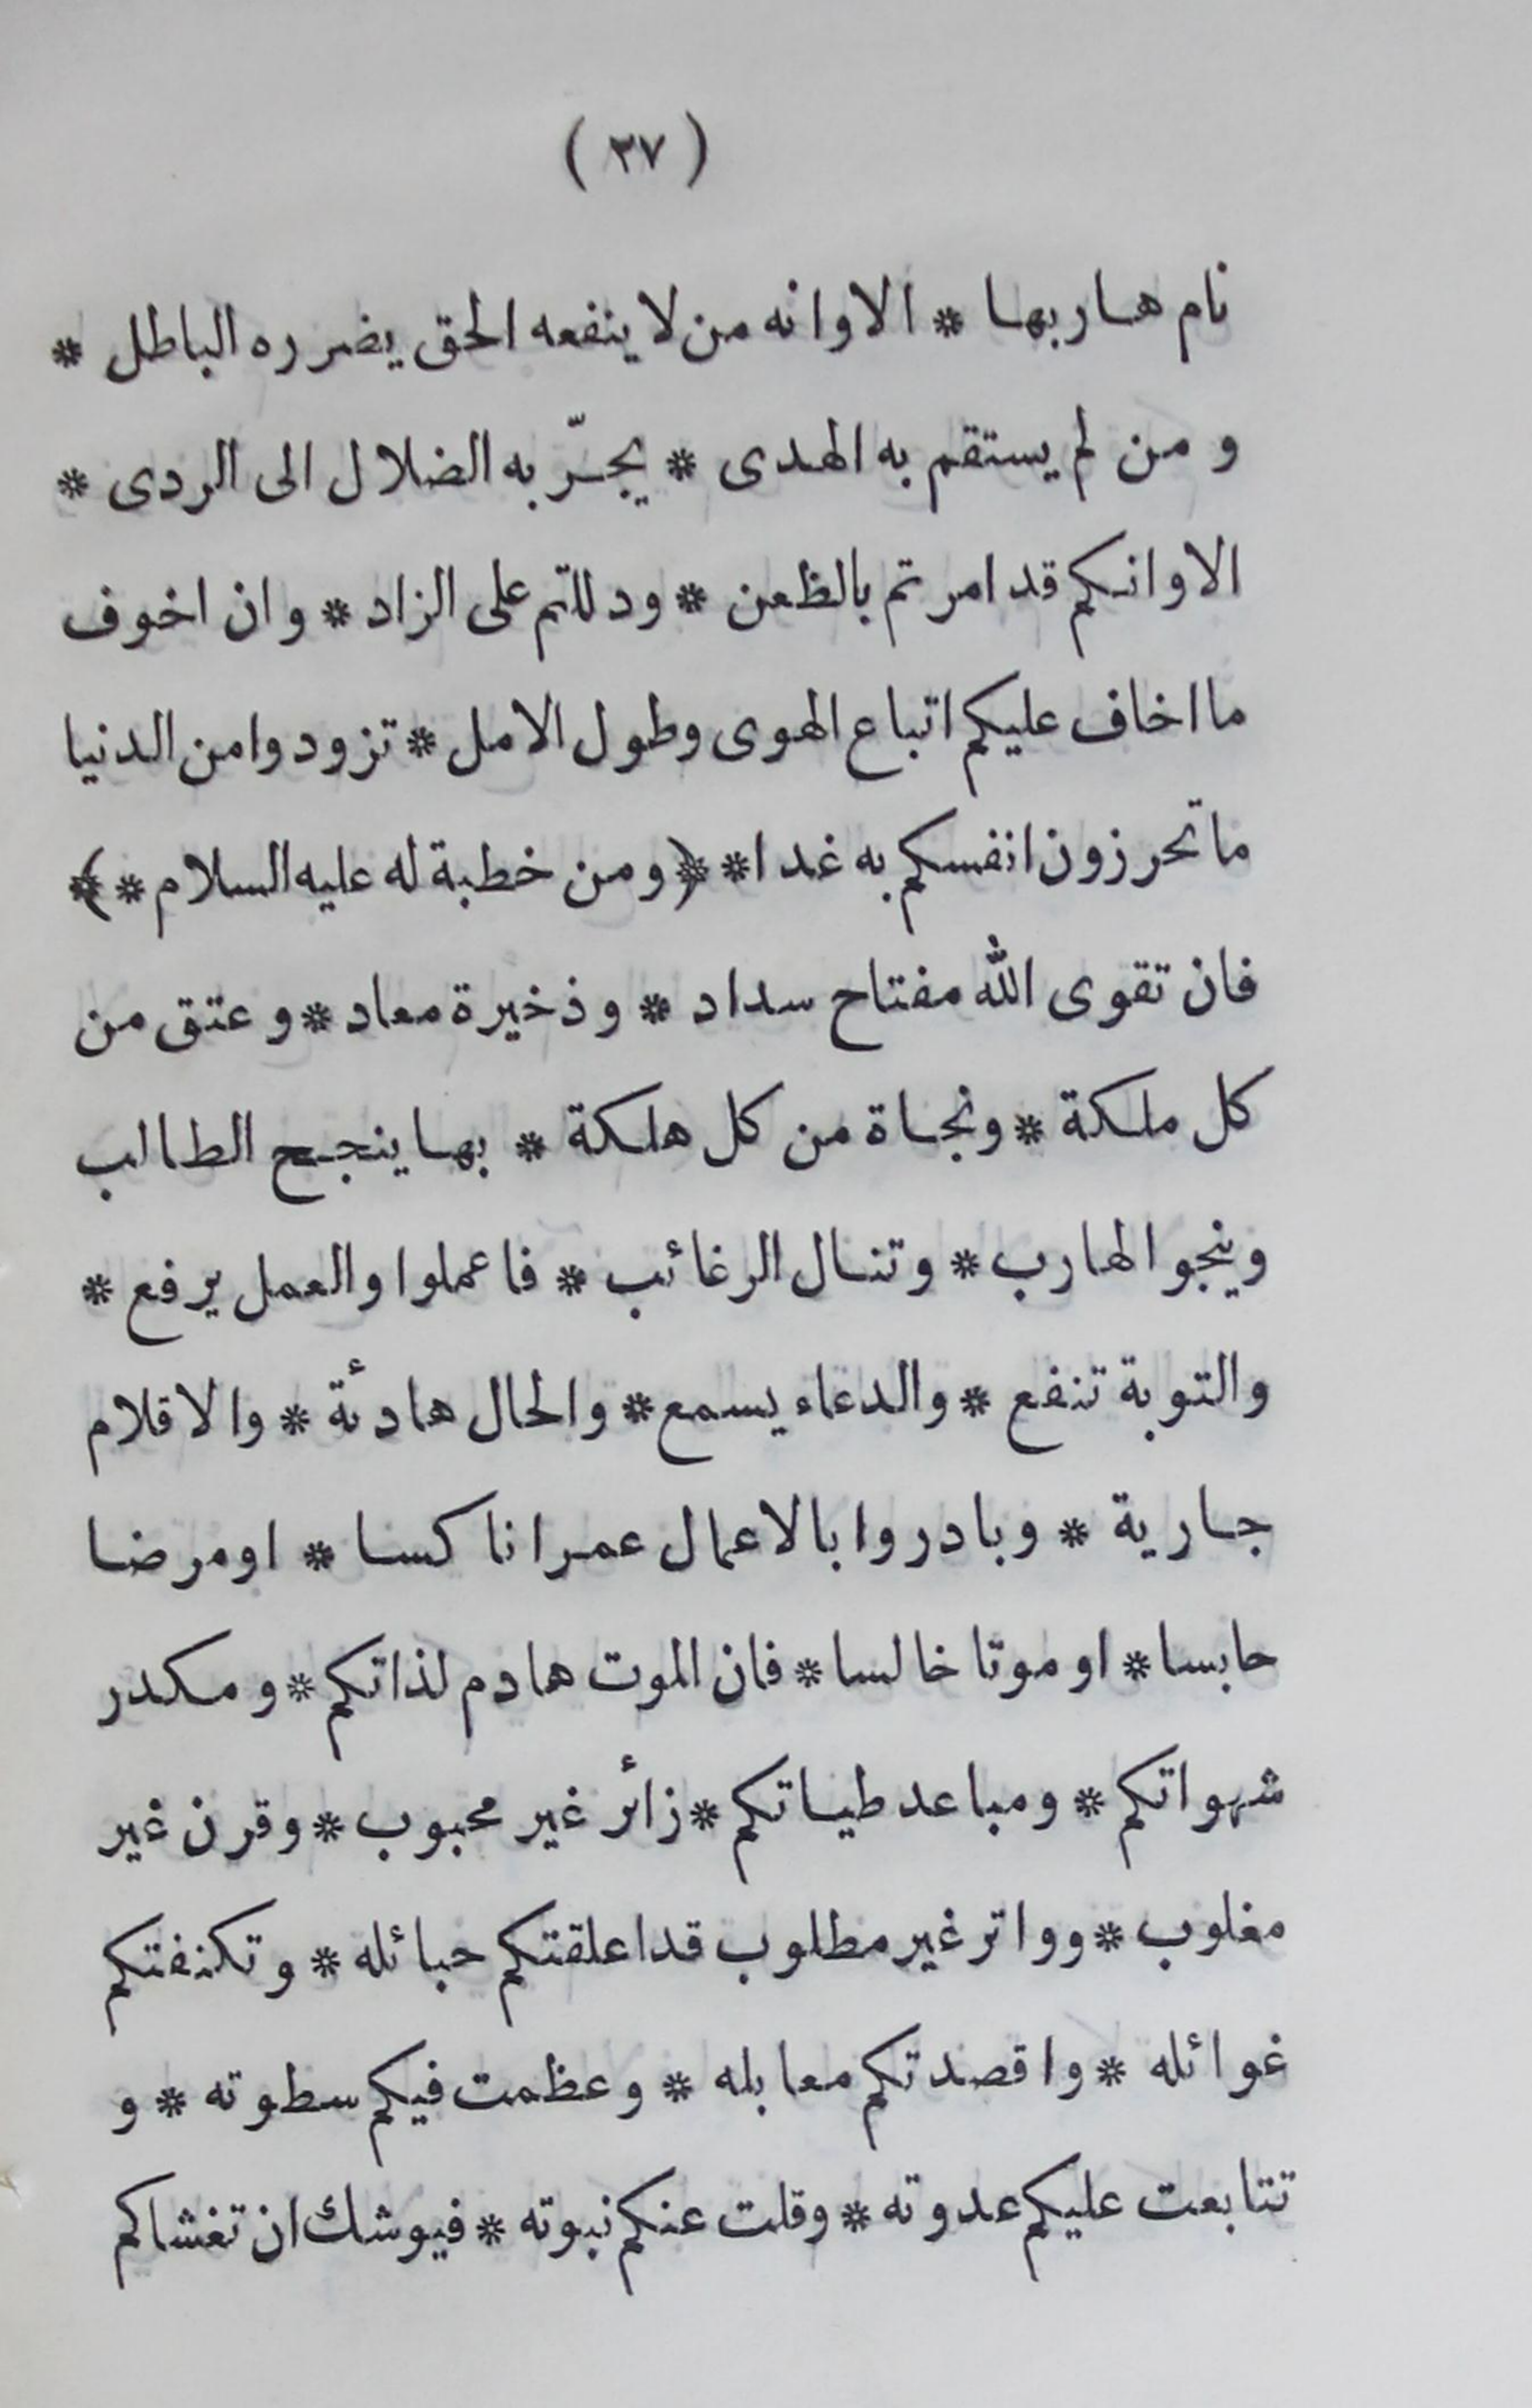 ( ٢٧ )
نام هاربها * الا وانه من لا ينفعه الحق يضرره الباطل *
و من لم يستقم به الهدى * يجرّ به الضلال الى الردى *
الا وانكم قد امرتم بالظعن * ودللتم على الزاد * وان اخوف
ما اخاف عليكم اتباع الهوى وطول الامل * تزودوا من الدنيا
ما تحرزون انفسكم به غدا * ﴿ ومن خطبة له عليه السلام * ﴾
فان تقوى الله مفتاح سداد * وذخيرة معاد * وعتق من
كل ملكة * ونجاة من كل هلكة * بها ينجح الطالب
وينجو الهارب * وتنال الرغائب * فاعملوا والعمل يرفع *
والتوبة تنفع * والدعاء يسمع * والحال هادئة * والاقلام
جارية * وبادروا بالاعمال عمرا ناكسا * او مرضا
حابسا * او موتا خالسا * فان الموت هادم لذاتكم * ومكدر
شهواتكم * ومباعد طياتكم * زائر غير محبوب * وقرن غير
مغلوب * وواتر غير مطلوب قد اعلقتكم حبائله * وتكنفتكم
غوائله * واقصدتكم معابله * وعظمت فيكم سطوته * و
تتابعت عليكم عدوته * وقلت عنكم نبوته * فيوشك ان تغشاكم